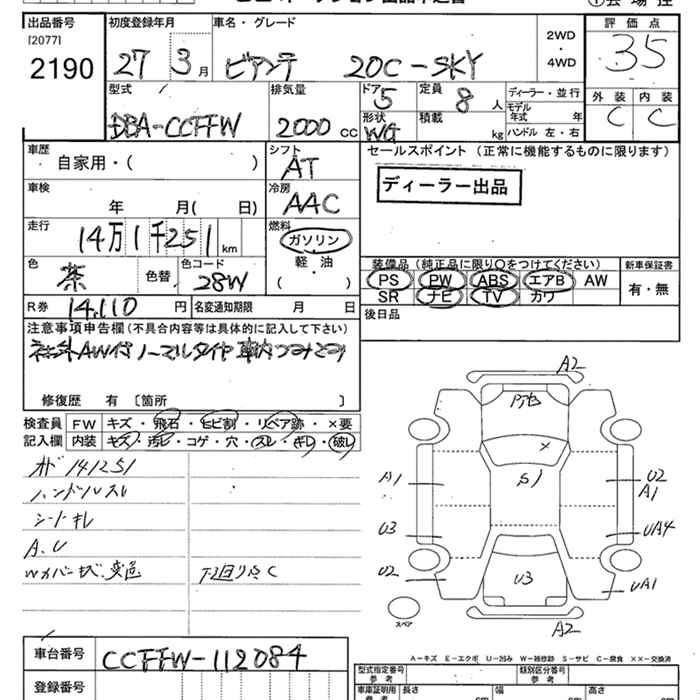 出品番号 初度登録年月 車名・グレード 評価点
[2077] 2190 27 3月 ビアンテ 20C-SKY 2WD・4WD 35
型式 排気量 ドア 5 定員 8人 ディーラー・並行 外装 内装
DBA-CCFFW 2000cc 形状 WG 積載 kg モデル年式 年 ハンドル 左・右 C C
車歴 自家用・( ) シフト AT セールスポイント (正常に機能するものに限ります)
車検 年 月( 日) 冷房 AAC ディーラー出品
走行 14万1千251km 燃料 ガソリン 軽・油 ( )
色 茶 色替 色コード 28W 装備品 (純正品に限り○をつけてください) 新車保証書
PS PW ABS エアB AW 有・無
R券 14,110円 名変通知期限 月 日 SR ナビ TV カワ
注意事項申告欄(不具合内容等は具体的に記入して下さい) 後日品
社外AW付 ノーマルタイヤ車内つみこみ
修復歴 有 [箇所 ]
検査員 FW キズ・飛石・ヒビ割・リペア跡・×要
記入欄 内装 キズ・汚レ・コゲ・穴・スレ・キレ・破レ
141251
ハンドルスレ
シートキレ
A.U
下回りサビ
A2
S1
A1 U2 A1
U3 UA4
U2 U3 UA1
スペア A2
A-キズ E-エクボ U-凹み W-補修跡 S-サビ C-腐食 ××-交換済
車台番号 CCFFW-112084 型式指定番号 参考 類別区分番号 参考
登録番号 車庫証明用 参考 長さ cm 幅 cm 高さ cm